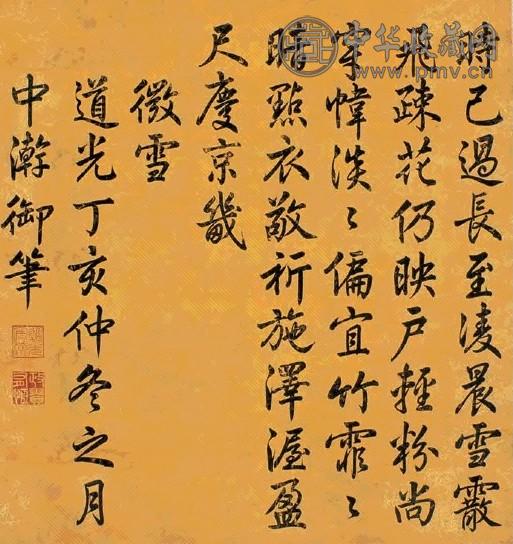 時已過長至凌晨雪霰
飛疎花仍映户輕粉尚
穿幃淡〻偏宜竹霏〻
眆點衣敬祈施澤渥盈
尺慶京畿
微雪
道光丁亥仲冬之月
中澣御筆
中华收藏网
www.pmv.cn